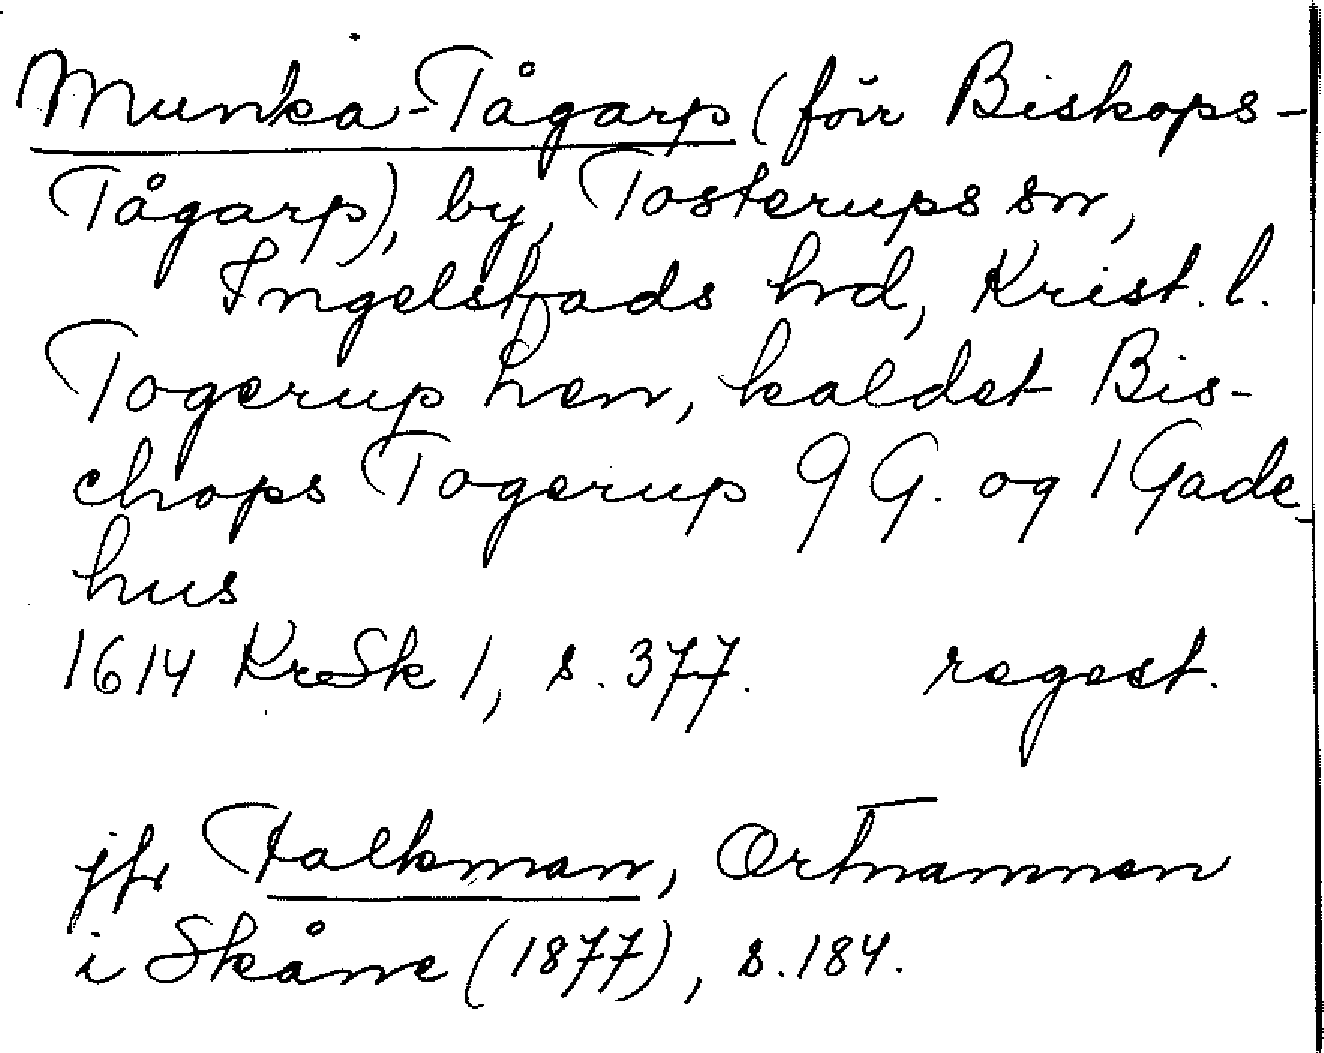 Munka-Tågarp (förr Biskops-
Tågarp), by, Tosterups sn,
Ingelstads hd, Krist. l.
Togerup hen, kaldet Bis-
chops Togerup 9 G. og 1 Gade-
hus
1614 KrSk 1, s. 377. regest.
jfr Falkman, Ortnamnen
i Skåne (1877), s. 184.